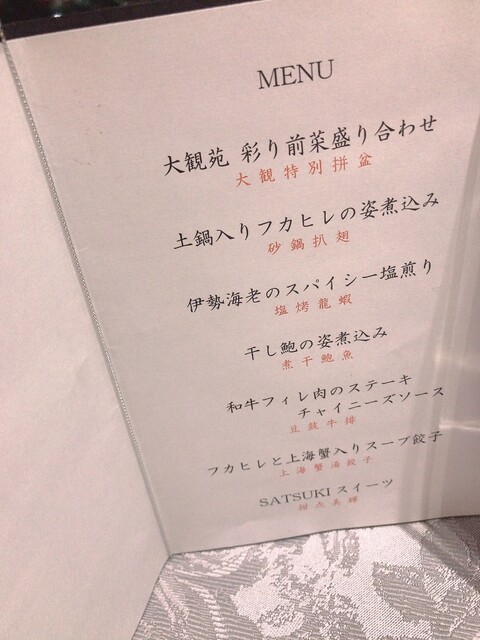 MENU
大観苑 彩り前菜盛り合わせ
大観特別拼盆
土鍋入りフカヒレの姿煮込み
砂鍋扒翅
伊勢海老のスパイシー塩煎り
塩烤龍蝦
干し鮑の姿煮込み
煮干鮑魚
和牛フィレ肉のステーキ
チャイニーズソース
豆豉牛排
フカヒレと上海蟹入りスープ餃子
上海蟹湯餃子
SATSUKI スイーツ
甜点美輝